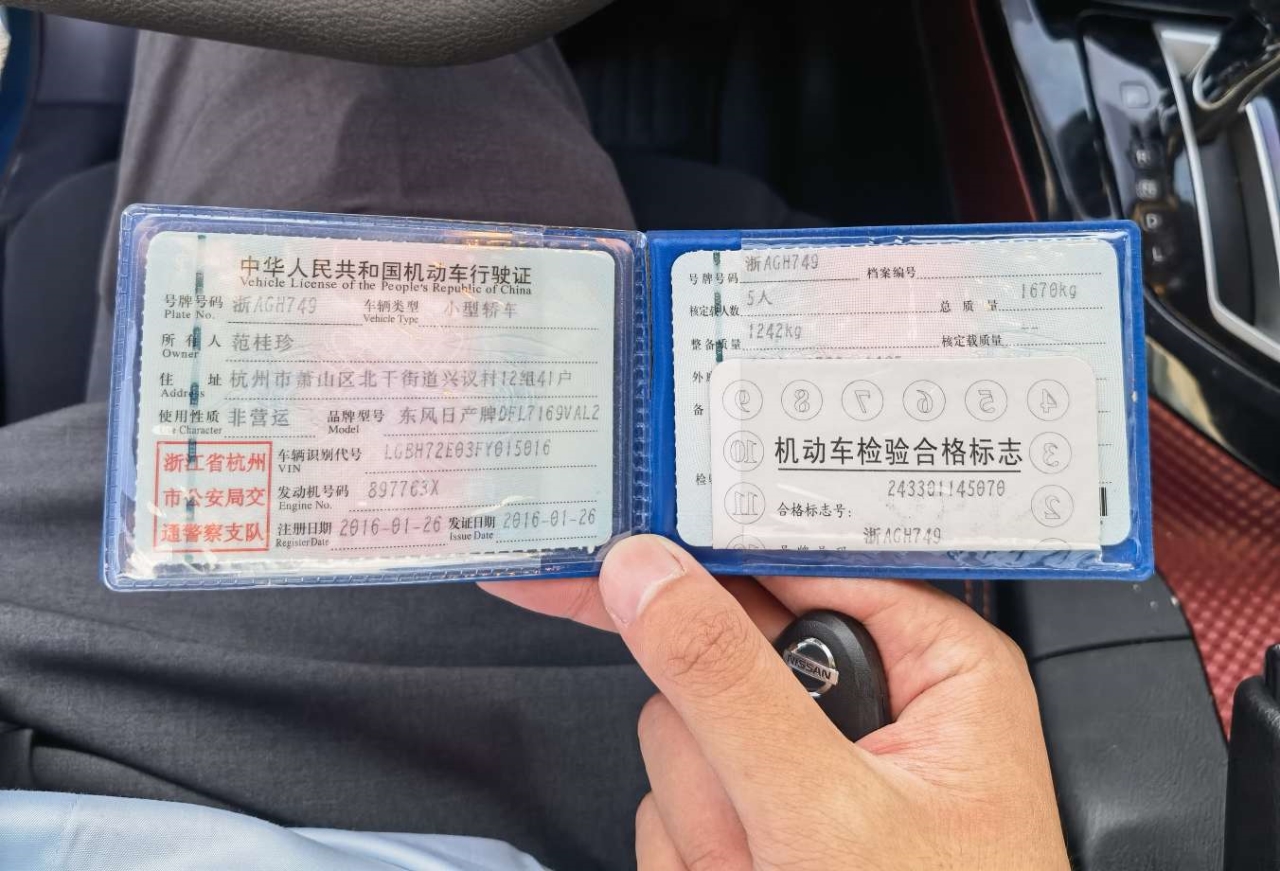 中华人民共和国机动车行驶证
Vehicle License of the People's Republic of China
号牌号码 浙AGH749 车辆类型 小型轿车
Plate No. Vehicle Type
所有人 范桂珍
Owner
住址 杭州市萧山区北干街道兴议村12组41户
Address
使用性质 非营运 品牌型号 东风日产牌DFL7169VAL2
Use Character Model
浙江省杭州
市公安局交
通警察支队
车辆识别代号 LGBH72E03FY015016
VIN
发动机号码 897763X
Engine No.
注册日期 2016-01-26 发证日期 2016-01-26
Register Date Issue Date
号牌号码 浙AGH749 档案编号
核定载人数 5人 总质量 1670kg
整备质量 1242kg 核定载质量 --
外
备
检
9 8 7 6 5 4
10 3
11 2
机动车检验合格标志
243301145070
合格标志号:
浙AGH749
号牌号码
NISSAN
R
N
D
L